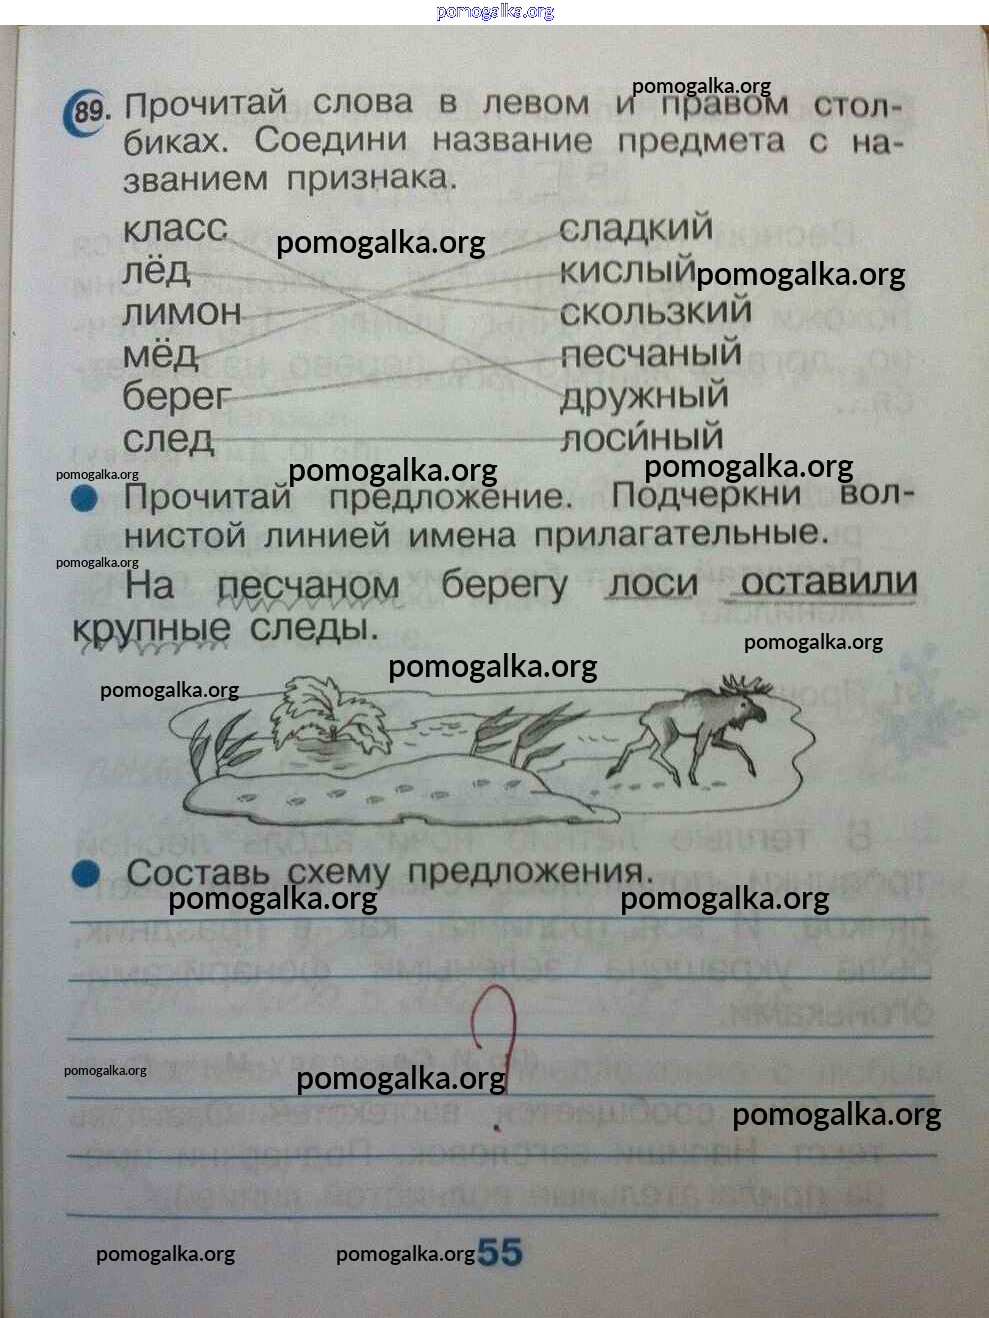 pomogalka.org
pomogalka.org
89. Прочитай слова в левом и правом стол-
биках. Соедини название предмета с на-
званием признака.
класс сладкий
pomogalka.org
лёд кислый
pomogalka.org
лимон скользкий
мёд песчаный
берег дружный
след лоси́ный
pomogalka.org pomogalka.org pomogalka.org
Прочитай предложение. Подчеркни вол-
нистой линией имена прилагательные.
pomogalka.org
На песчаном берегу лоси оставили
крупные следы.
pomogalka.org
pomogalka.org
pomogalka.org
Составь схему предложения.
pomogalka.org pomogalka.org
?
pomogalka.org pomogalka.org
pomogalka.org
pomogalka.org pomogalka.org 55